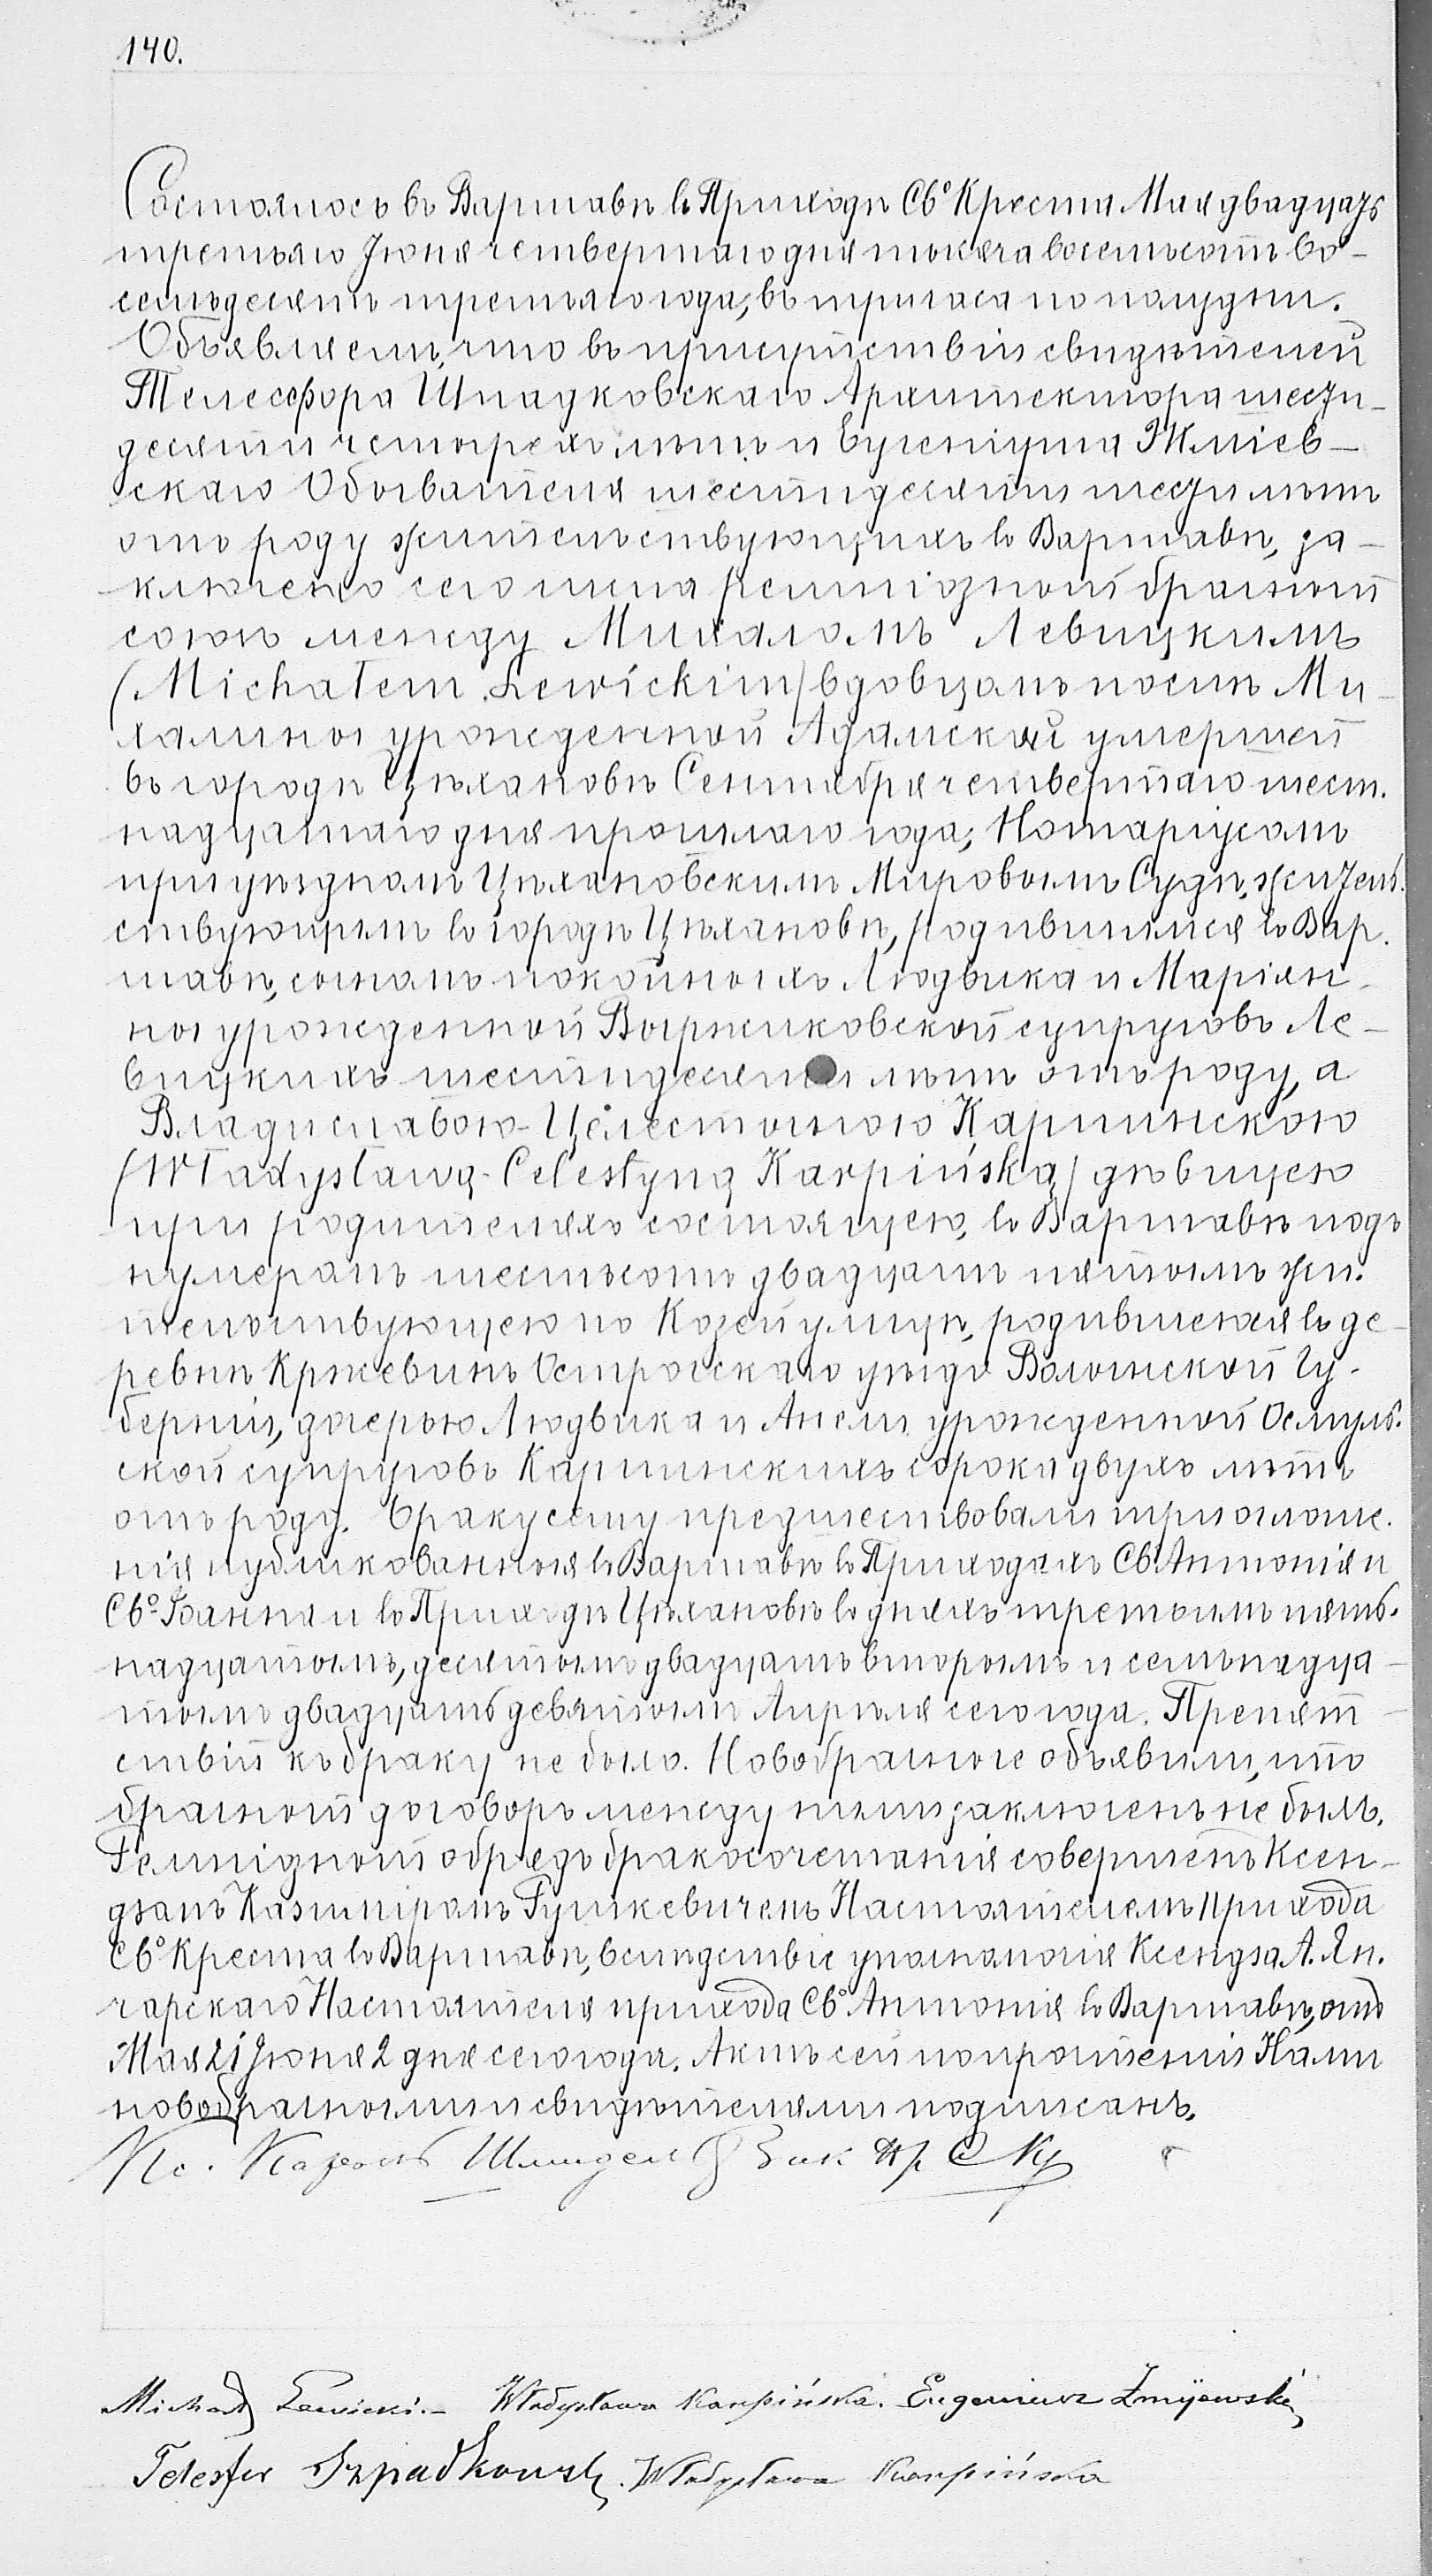 140.
Состоялось въ Варшавѣ въ Приходѣ Свº Креста Мая двадцать
третьяго Іюня четвертаго дня тысяча восемьсотъ во-
семьдесятъ третьяго года, въ три часа по полудни.
Объявляемъ, что въ присутствіи свидѣтелей
Телесфора Шпадковскаго Архитектора шести-
десяти четырехъ лѣтъ и Евгеніуша Жміев-
скаго Обывателя шестидесяти шести лѣтъ
отъ роду жительствующихъ въ Варшавѣ, за-
ключено сего числа религіозный брачный
союзъ между Михаломъ Левицкимъ
(Michałem Lewickim) вдовцомъ послѣ Ми-
халины урожденной Адамской умершей
въ городѣ Цѣхановѣ Сентября четвертаго шест.
надцатаго дня прошлаго года, Нотаріусомъ
при уѣздномъ Цѣхановскимъ Мировомъ Судѣ, житель.
ствующимъ въ городѣ Цѣхановѣ, родившимся въ Вар.
шавѣ, сыномъ покойныхъ Людвика и Маріян-
ны урожденной Выржиковской супруговъ Ле-
вицкихъ шестидесяти лѣтъ отъ роду, а
Владиславою-Целестыною Карпинскою
(Władysławą-Celestyną Karpińską) дѣвицею
при родителяхъ состоящею, въ Варшавѣ подъ
нумеромъ шестьсотъ двадцать пятымъ жи.
тельствующею по Козей улицѣ, родившеюся въ де-
ревнѣ Кржевинѣ Острогскаго уѣзда Волынской Гу-
берніи, дочерью Людвика и Анели урожденной Осмуль.
ской супруговъ Карпинскихъ сорока двухъ лѣтъ
отъ роду. Браку сему предшествовали три оглаше.
нія публикованныя въ Варшавѣ въ Приходахъ Св. Антонія и
Свº Іоанна и въ Приходѣ Цѣхановѣ въ дняхъ третьимъ пят.
надцатомъ, десятомъ двадцать второмъ и семьнадца-
томъ двадцать девятомъ Апрѣля сего года. Препят-
ствій къ браку не было. Новобрачные объявили, что
брачный договоръ между ними заключенъ не былъ.
Религіозный обрядъ бракосочетанія совершенъ Ксен-
дзомъ Казиміромъ Гумкевичемъ Настоятелемъ Прихода
Свº Креста въ Варшавѣ, вслѣдствіе уполномочія Ксендза А. Ян.
чарскаго Настоятеля прихода Свº Антонія въ Варшавѣ, отъ
Мая 21 Іюня 2 дня сего года. Актъ сей по прочтеніи Нами
новобрачными и свидѣтелями подписанъ.
Кс. Кароль Шмидель Вик Пр С Кр
Michał Lewicki.- Władysława Karpińska. Eugeniusz Żmijewski
Telesfor Szpadkowski. Władysława Karpińska